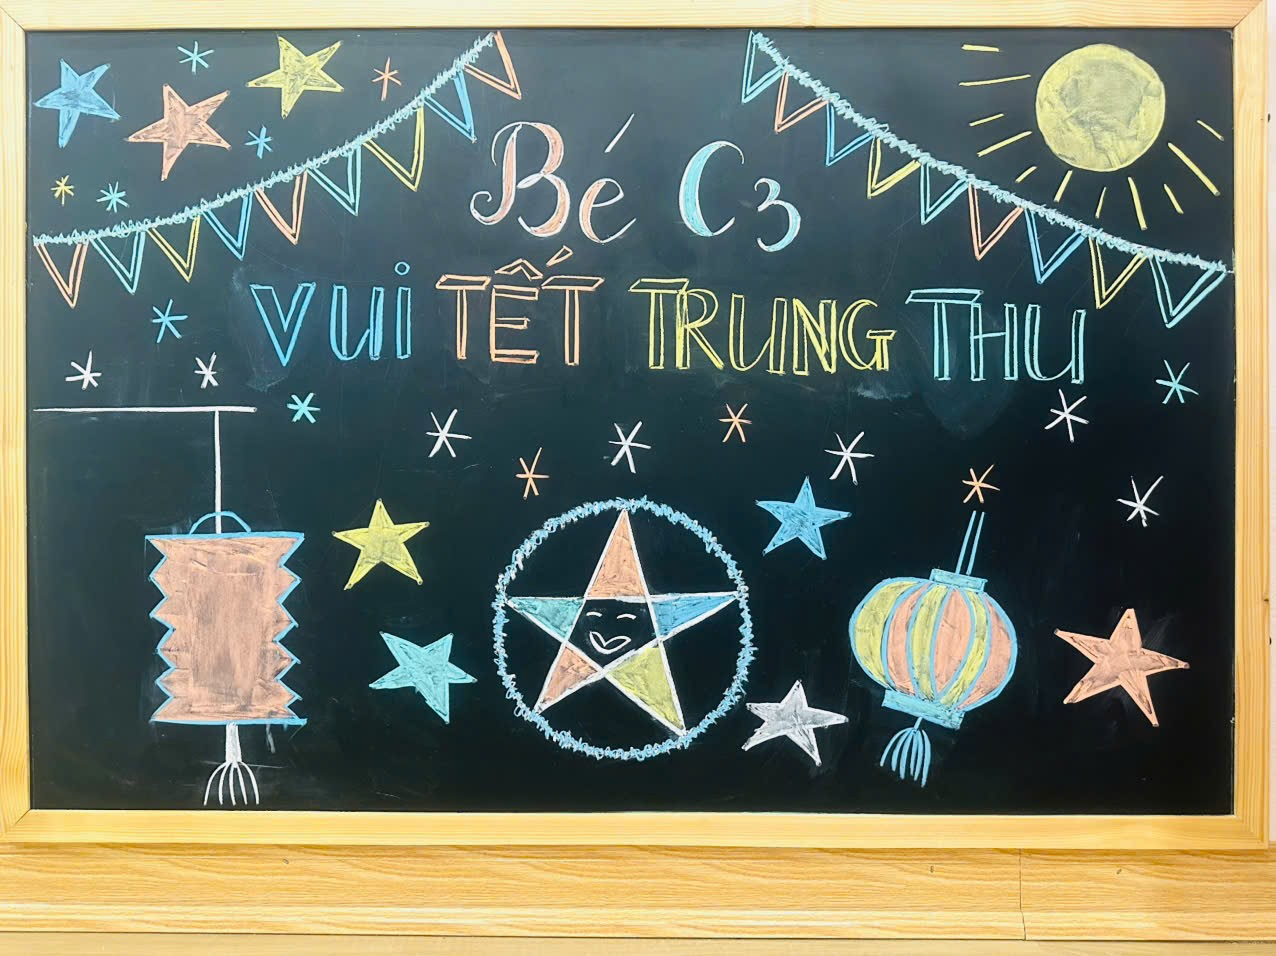 Bé C3
VUI TẾT TRUNG THU